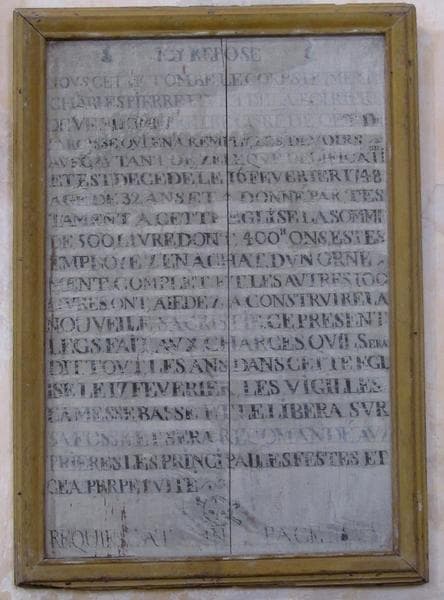 ICY REPOSE
SOUS CETTE TOMBE LE CORPS DE
CHARLES PIERRE
DE CETTE
PAROISSE QVI EN A REMPLI LES DEVOIRS
AVEC AVTANT DE ZELE QVE
ET EST DECEDE LE 16 FEVERIER 1748
AGE DE 32 ANS ET A DONNE PAR TES
TAMENT A CETTE EGLISE LA SOMME
DE 500 LIVRE DONT 400ᴴ ONS ESTES
EMPLOYEZ EN ACHAT DVN ORNE
MENT COMPLET ET LES AVTRES 100
LIVRES ONT AIEDEZ A CONSTRVIRE LA
NOUVEILE SACRISTIE CE PRESENT
LEGS FAIT AVX CHARGES QVIL SERA
DIT TOVT LES ANS DANS CETTE EGL
ISE LE 17 FEVERIER LES VIGILLES
LA MESSE BASSE ET LE LIBERA SVR
SA FOSSE ET SERA RECOMANDÉ AVX
PRIERES LES PRINCIPAILES FESTES ET
CE A PERPETVITE
REQUIESCAT IN PACE